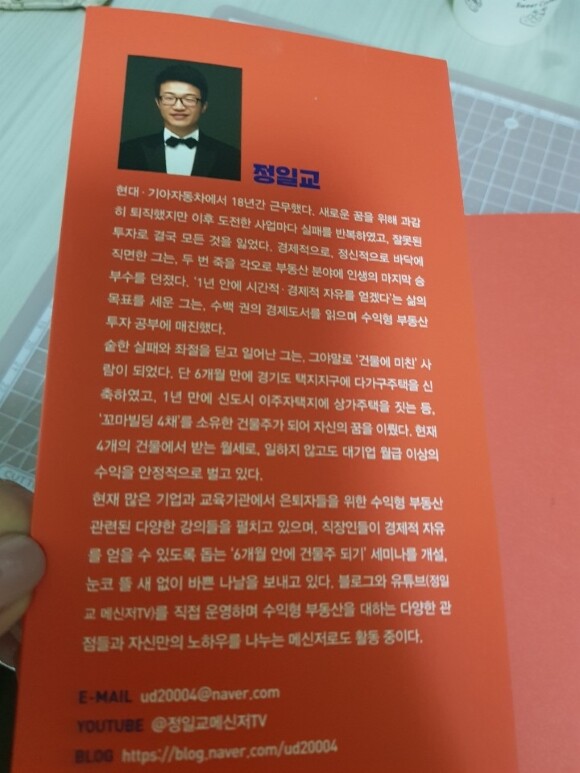 정일교
현대·기아자동차에서 18년간 근무했다. 새로운 꿈을 위해 과감
히 퇴직했지만 이후 도전한 사업마다 실패를 반복하였고, 잘못된
투자로 결국 모든 것을 잃었다. 경제적으로, 정신적으로 바닥에
직면한 그는, 두 번 죽을 각오로 부동산 분야에 인생의 마지막 승
부수를 던졌다. '1년 안에 시간적·경제적 자유를 얻겠다'는 삶의
목표를 세운 그는, 수백 권의 경제도서를 읽으며 수익형 부동산
투자 공부에 매진했다.
숱한 실패와 좌절을 딛고 일어난 그는, 그야말로 '건물에 미친' 사
람이 되었다. 단 6개월 만에 경기도 택지지구에 다가구주택을 신
축하였고, 1년 만에 신도시 이주자택지에 상가주택을 짓는 등,
'꼬마빌딩 4채'를 소유한 건물주가 되어 자신의 꿈을 이뤘다. 현재
4개의 건물에서 받는 월세로, 일하지 않고도 대기업 월급 이상의
수익을 안정적으로 벌고 있다.
현재 많은 기업과 교육기관에서 은퇴자들을 위한 수익형 부동산
관련된 다양한 강의들을 펼치고 있으며, 직장인들이 경제적 자유
를 얻을 수 있도록 돕는 '6개월 안에 건물주 되기' 세미나를 개설,
눈코 뜰 새 없이 바쁜 나날을 보내고 있다. 블로그와 유튜브(정일
교 메신저TV)를 직접 운영하며 수익형 부동산을 대하는 다양한 관
점들과 자신만의 노하우를 나누는 메신저로도 활동 중이다.
E-MAIL ud20004@naver.com
YOUTUBE @정일교메신저TV
BLOG https://blog.naver.com/ud20004